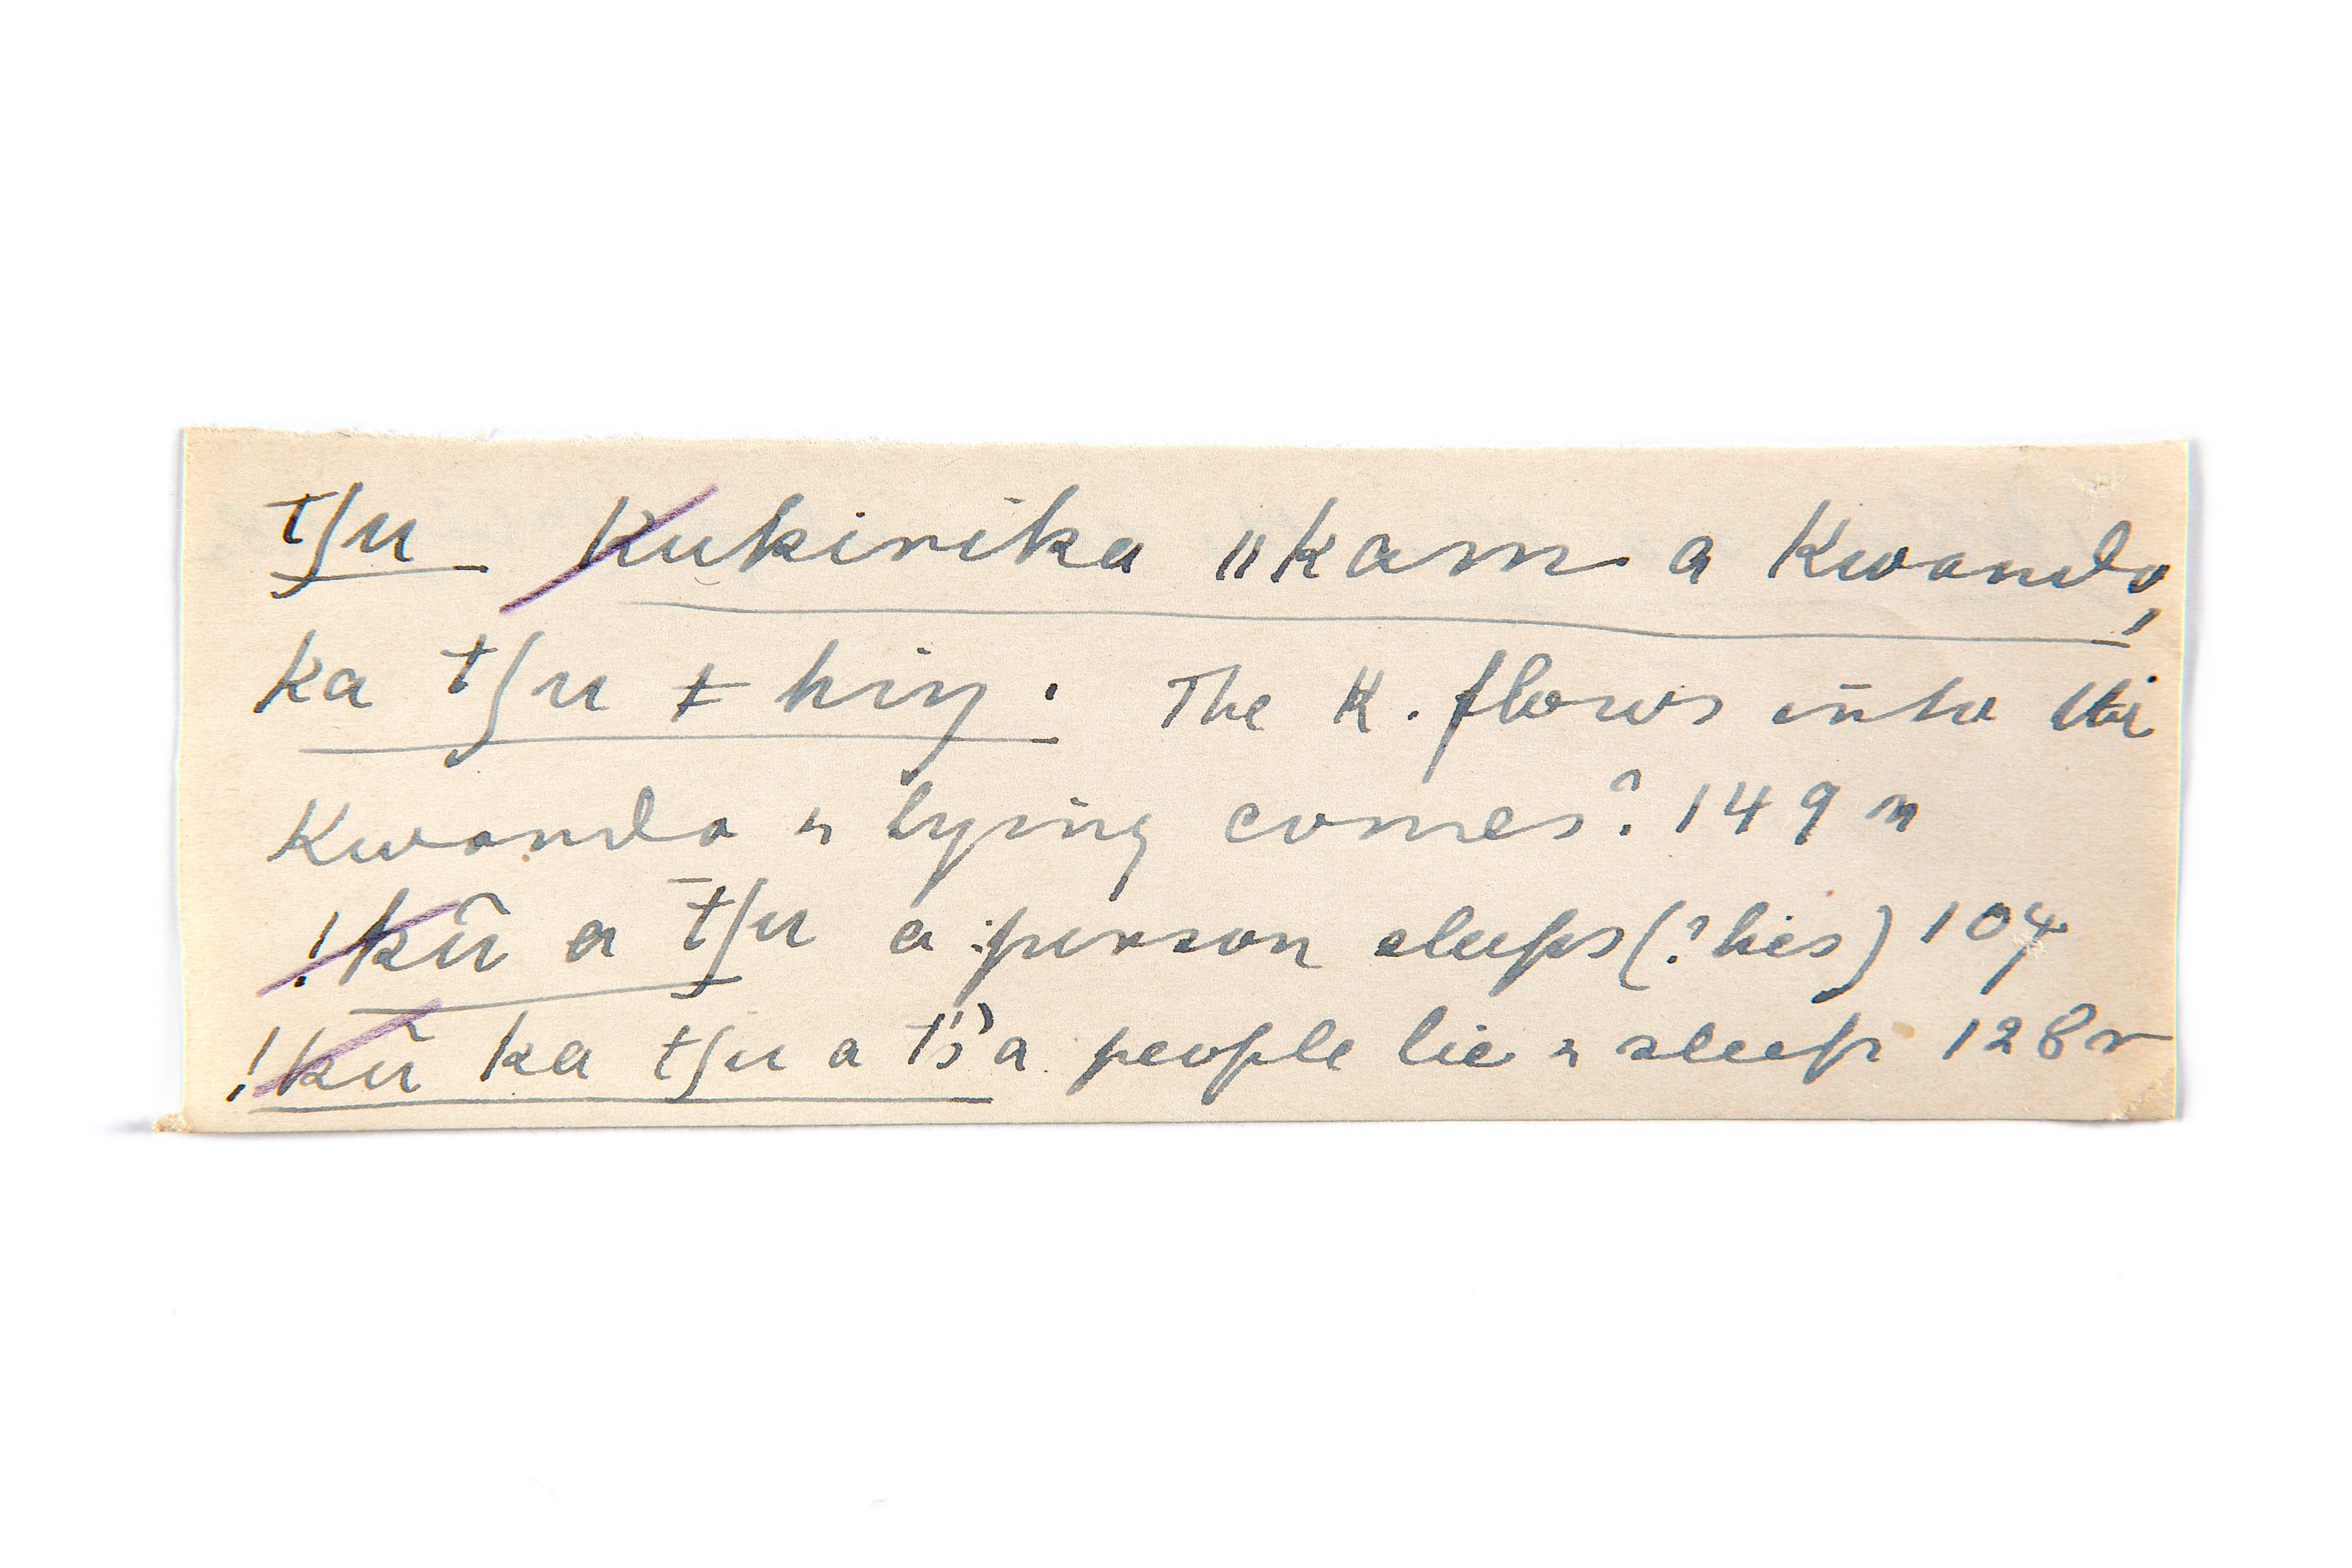 tʃu Kukirika ǁkam a Kwando,
ka tʃu ǂhiŋ. The K. flows into the
Kwando & lying comes? 149
!kũ a t̄ʃu a person sleeps (? lies) 104
!kũ ka tʃu a ts'a people lie & sleep 128r